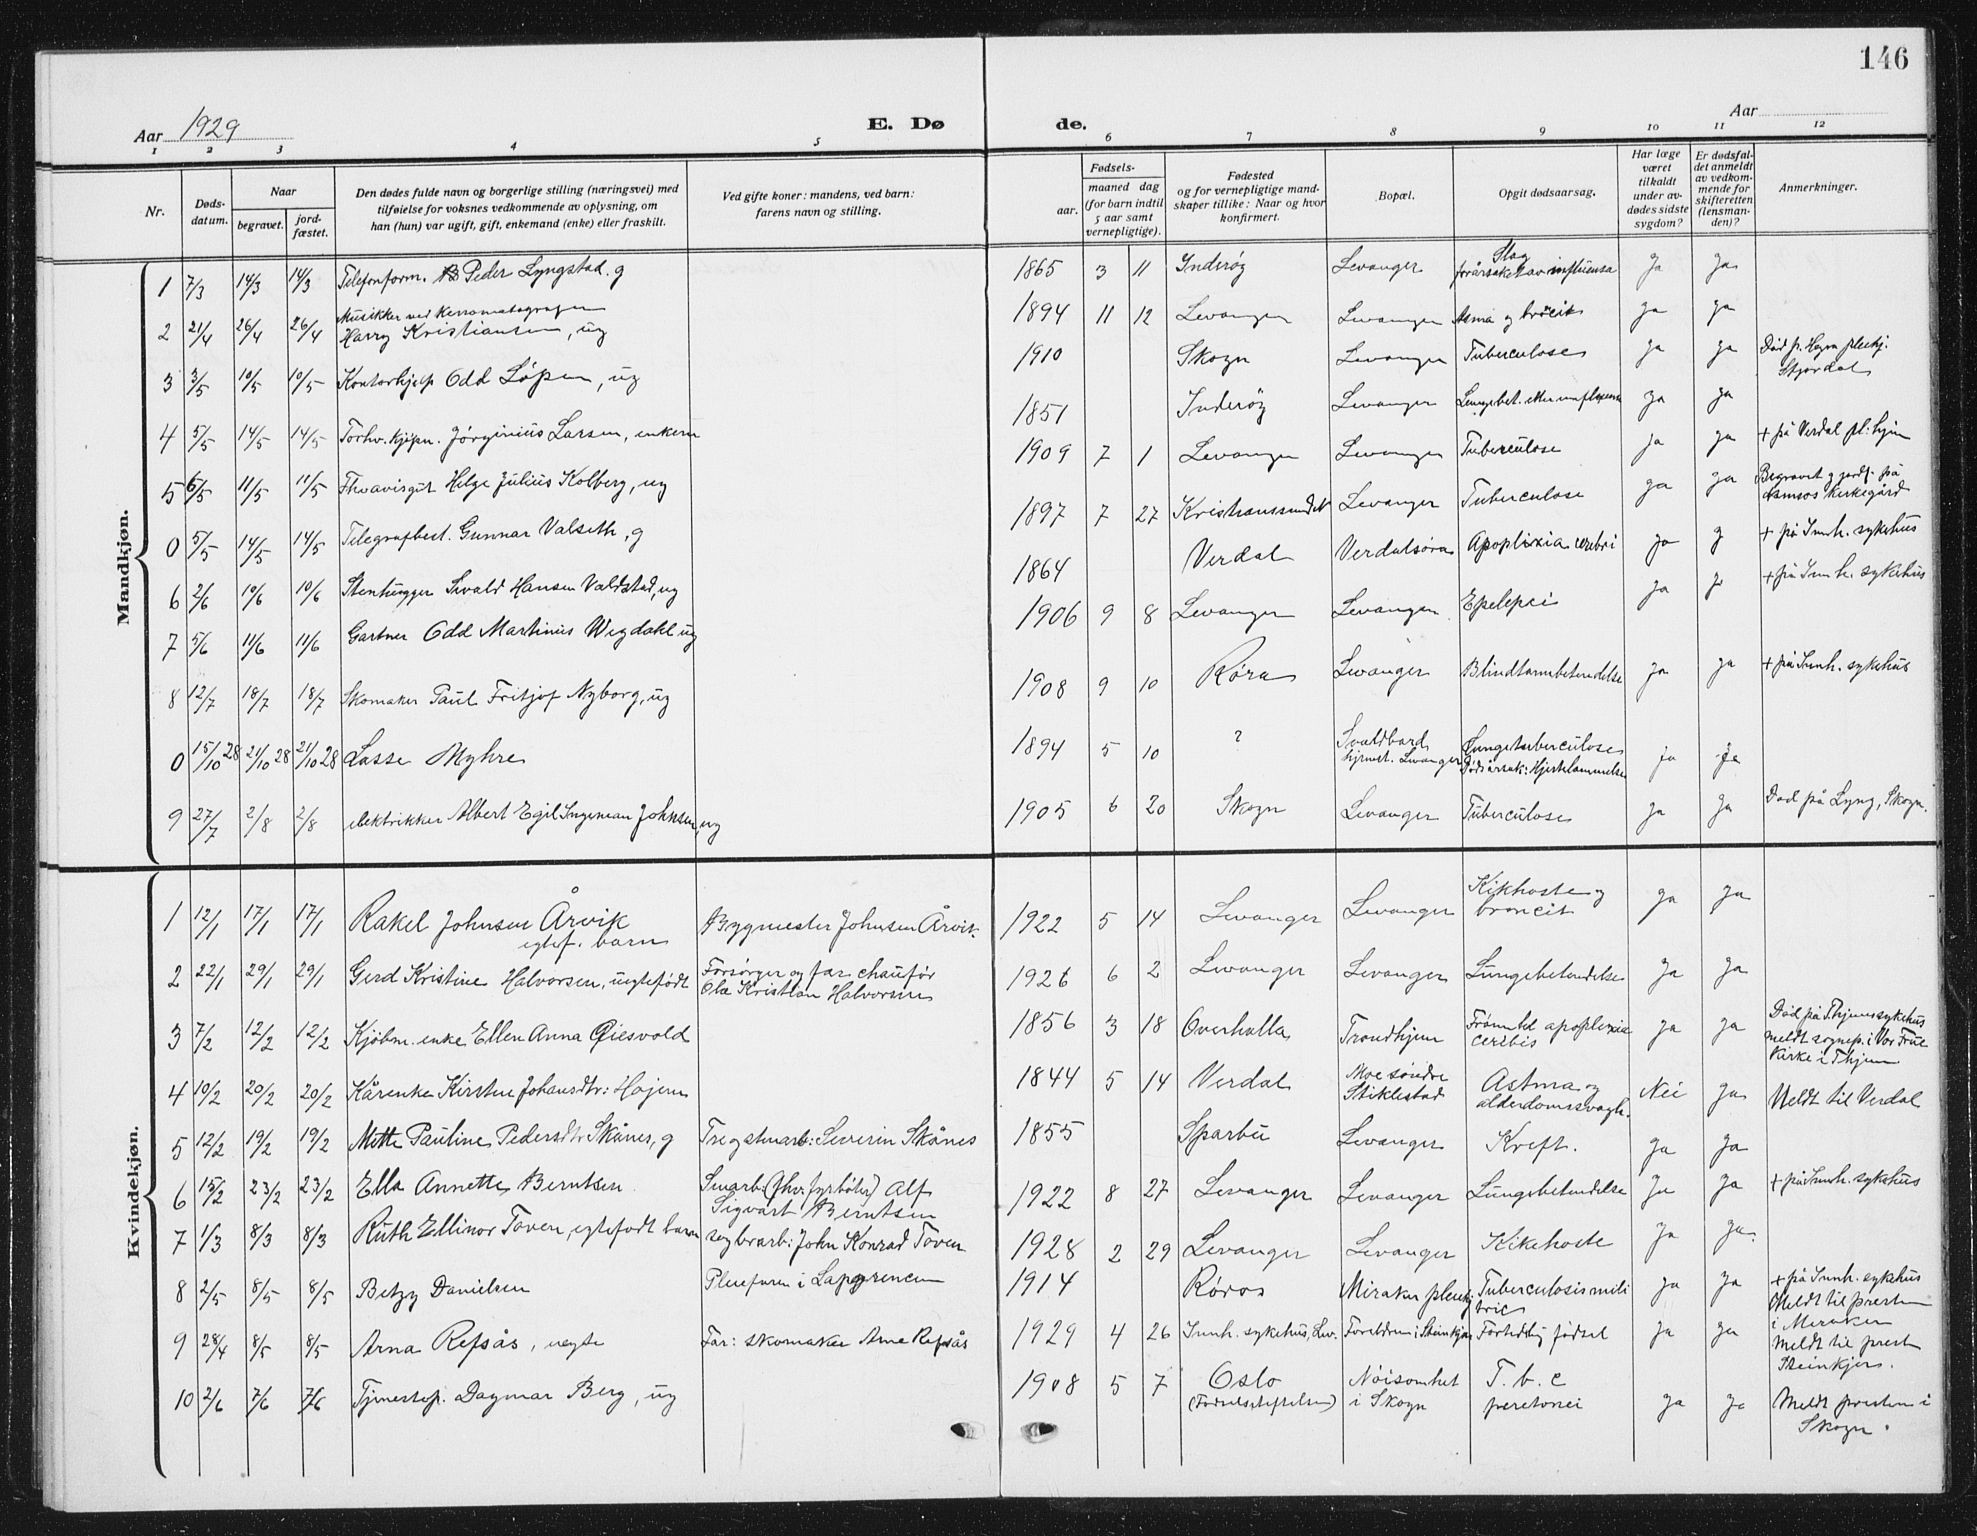 146
Aar 1929
E. Dø
de.
Aar
1 2 3 4 5 6 7 8 9 10 11 12
Nr.
Døds-
datum.
Naar
begravet.
jord-
fæstet.
Den dødes fulde navn og borgerlige stilling (næringsvei) med
tilføielse for voksnes vedkommende av oplysning, om
han (hun) var ugift, gift, enkemand (enke) eller fraskilt.
Ved gifte koner: mandens, ved barn:
farens navn og stilling.
Fødsels-
aar.
maaned dag
(for barn indtil
5 aar samt
vernepligtige).
Fødested
og for vernepligtige mand-
skaper tillike: Naar og hvor
konfirmert.
Bopæl.
Opgit dødsaarsag.
Har læge
været
tilkaldt
under av-
dødes sidste
sygdom?
Er dødsfal-
det anmeldt
av vedkom-
mende for
skifteretten
(lensman-
den)?
Anmerkninger.
Mandkjøn.
1 7/3 14/3 14/3 Telefonform. Peder Lyngstad. g 1865 3 11 Inderøy Levanger Slag forårsaket av influensa Ja Ja
2 21/4 26/4 26/4 Musikker ved
Harry Kristiansen, ug 1894 11 12 Levanger Levanger Asma og Ja Ja
3 3/5 10/5 10/5 Kontorhjelp Odd Løpen, ug 1910 Skogn Levanger Tuberculose Ja Ja Død p. Hegra pleiehj.
Stjørdal
4 5/5 14/5 14/5 Torhv. kjøpm. Jørginius Larsen, enkem 1851 Inderøy Levanger Lungebet. etter influensa Ja Ja
5 6/5 11/5 11/5 Helge Julius Kolberg, ug 1909 7 1 Levanger Levanger Tuberculose Ja Ja + på Verdal pl:hjm
0 5/5 14/5 14/5 Telegrafbest. Gunnar Valseth, g 1897 7 27 Kristianssund N Levanger Tuberculose Ja Ja Begravet og jordf. på
Namsos Kirkegård
6 2/6 10/6 10/6 Stenhugger Sivald Hansen Valdstad, ug 1864 Verdal Verdalsøra Apoplexia cerebri Ja J + på Innh. sykehus
7 5/6 11/6 11/6 Gartner Odd Martinus Wigdahl ug 1906 9 8 Levanger Levanger Epelepsi Ja J + på Innh. sykehus
8 12/7 18/7 18/7 Skomaker Paul Fritjof Nyborg, ug 1908 9 10 Røra Levanger Blindtarmbetendelse Ja Ja + på Innh. sykehus
0 15/10 28 21/10 28 21/10 28 Lasse Myhre 1894 5 10 ? Svaldbard
hjemst. Levanger Lungetuberculose
Dødsårsak: Hjertelammelse Ja Ja
9 27/7 2/8 2/8 elektrikker Albert Egil Ingeman Johnsen, ug 1905 6 20 Skogn Levanger Tuberculose Ja Ja Død på Lyng, Skogn.
Kvindekjøn.
1 12/1 17/1 17/1 Rakel Johnsen Årvik
egtef. barn Bygmester Johnsen Årvik 1922 5 14 Levanger Levanger Kikhoste og
broncit Ja Ja
2 22/1 29/1 29/1 Gerd Kristine Halvorsen, uegtefødt Forsørger og far chauför
Ola Kristian Halvorsen 1926 6 2 Levanger Levanger Lungebetendelse Ja Ja
3 7/2 12/2 12/2 Kjöbm. enke Ellen Anna Qiesvold 1856 3 18 Overhalla Trondhjem apoplexia
cerebis Ja Ja Död på Thjemssykehus
meldt sognep. i Vor Frue
Kirke i Thjem
4 10/2 20/2 20/2 Kårenke Kirsten Johansdtr: Hojem 1844 5 14 Verdal Moe søndre
Stiklestad Astma og
alderdomssvagh. Nei Ja Meldt til Verdal
5 12/2 19/2 19/2 Mette Pauline Pedersdtr Skånes, g Severin Skånes 1855 Sparbu Levanger Kreft. Ja Ja
6 15/2 23/2 23/2 Ella Annette Berntsen Smarb. (fhv. fyrböter) Alf
Sigvart Berntsen 1922 8 27 Levanger Levanger Lungebetendelse Ja Ja + på Innh. sykehus
7 1/3 8/3 8/3 Ruth Ellinor Toven, egtefødt barn sagbrarb: John Konrad Toven 1928 2 29 Levanger Levanger Kikehoste Ja Ja.
8 2/5 8/5 8/5 Betzy Danielsen Pleiefaren i Lapp 1914 Røros Meraker pleiehj Tuberculosis mili Ja Ja + på Innh. sykehus
Meldt til presten
i Meraker
9 28/4 8/5 8/5 Arna Refsås, uegte Far: skomaker Arne Refsås 1929 4 26 Innh. sykehus, Lev. Foreldren i Steinkjer Fortidlig födsel Ja Ja Meldt til prest
Steinkjers.
10 2/6 7/6 7/6 Tjenestep. Dagmar Berg, ug 1908 5 7 Oslo
(Födselsstiftelsen) Nöisomhet
i Skogn T. b. c
peretonei Ja Ja Meldt presten i
Skogn.